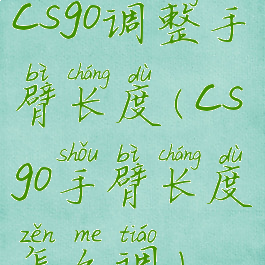 csgo调整手
bì cháng dù
臂长度(cs
shǒu bì cháng dù
go手臂长度
zěn me tiáo
怎么调)